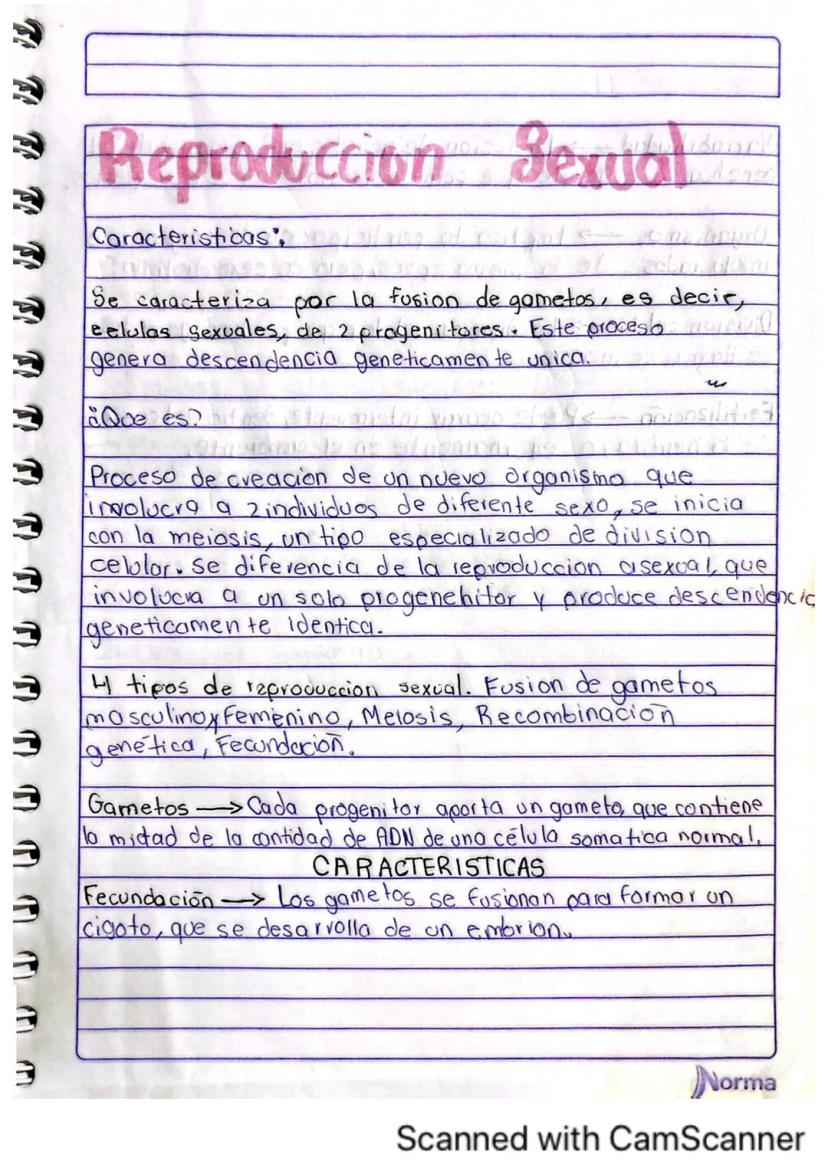 Reproduccion Sexual
Caracteristicas:
Se caracteriza por la fusion de gametos, es decir,
celulas sexuales, de 2 progenitores. Este proceso
genera descendencia geneticamente unica.
¿Que es?
Proceso de creación de un nuevo organismo que
involucra a 2 individuos de diferente sexo, se inicia
con la meiosis, un tipo especializado de division
celular. Se diferencia de la reproduccion asexual, que
involucra a un solo progenehitor y produce descendencia
geneticamente identica.
4 tipos de reproduccion sexual. Fusion de gametos
masculino y Femenino, Meiosis, Recombinación
genética, Fecundación.
Gametos → Cada progenitor aporta un gameto, que contiene
la mitad de la cantidad de ADN de una célula somatica normal.
CARACTERISTICAS
Fecundación → Los gametos se fusionan para formar un
cigoto, que se desarrolla de un embrion.
Norma
Scanned with CamScanner